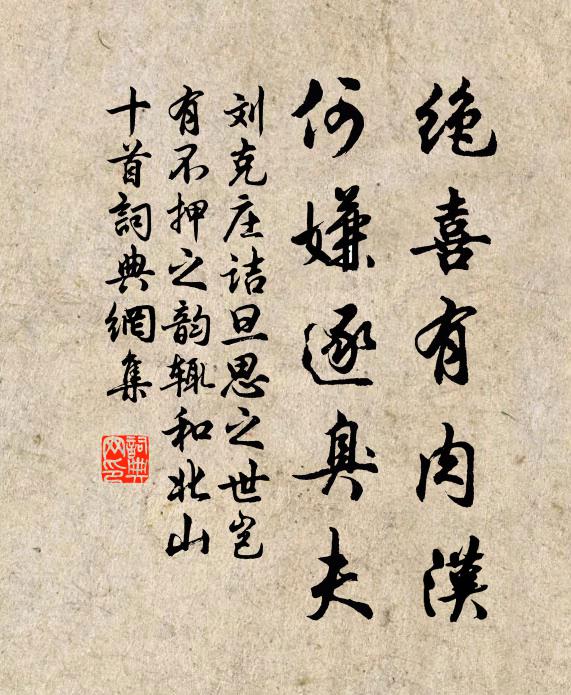 绝喜有肉汉
何嫌逐臭夫
刘克庄诘旦思之世岂
有不押之韵辄和北山
十首詞典網集
詞典網印